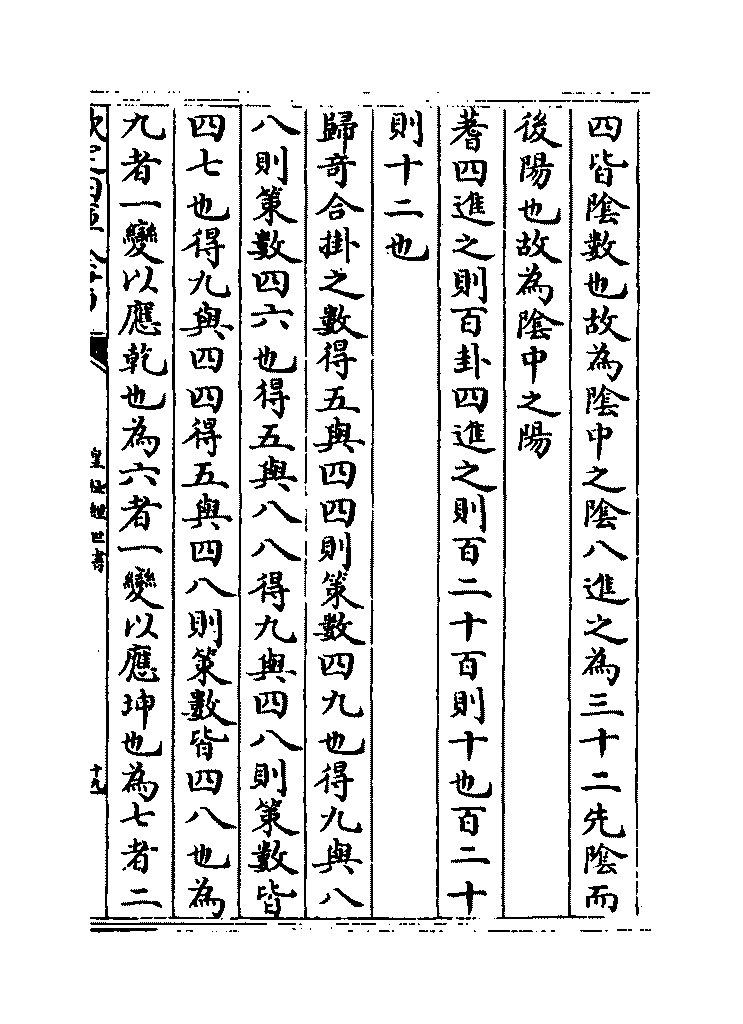 四皆陰數也故為陰中之陰八進之為三十二先陰而
後陽也故為陰中之陽
蓍四進之則百卦四進之則百二十百則十也百二十
則十二也
歸奇合掛之數得五與四四則策數四九也得九與八
八則策數四六也得五與八八得九與四八則策數皆
四七也得九與四四得五與四八則策數皆四八也為
九者一變以應乾也為六者一變以應坤也為七者二
皇極經世書
十九